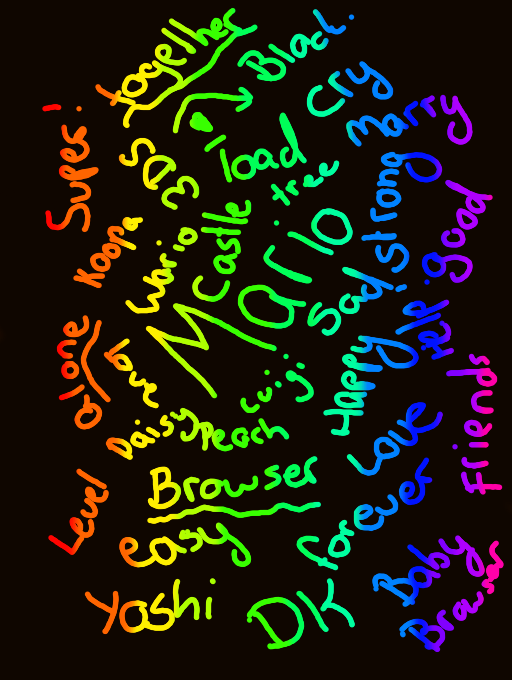 together
Black.
Cry
Marry
Super!
3DS
Toad
tree
strong
good
Koopa
Wario
Castle
Mario
Sad
help
alone
love
Daisy
Luigi
Peach
Happy
Love
Friends
Level
Browser
easy
forever
Yoshi
DK
Baby
Browser